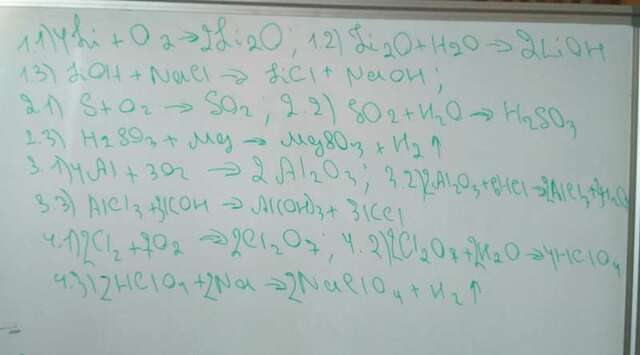 1.1) 4Li + O2 → 2Li2O; 1.2) Li2O + H2O → 2LiOH
1.3) LiOH + NaCl → LiCl + NaOH;
2.1) S + O2 → SO2; 2.2) SO2 + H2O → H2SO3
2.3) H2SO3 + Mg → MgSO3 + H2↑
3.1) 4Al + 3O2 → 2Al2O3; 3.2) Al2O3 + 6HCl → 2AlCl3 + 3H2O
3.3) AlCl3 + 3KOH → Al(OH)3 + 3KCl
4.1) 2Cl2 + 7O2 → 2Cl2O7; 4.2) 2Cl2O7 + 2H2O → 4HClO4
4.3) 2HClO4 + 2Na → 2NaClO4 + H2↑